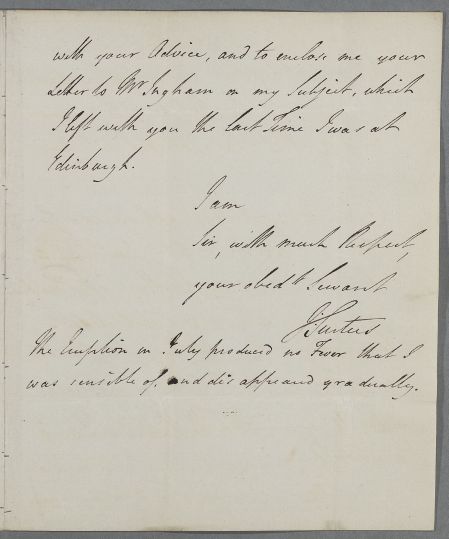 with your Advice, and to enclose me your
Letter to Mr Ingham on my Subject, which
I left with you the last Time I was at
Edinburgh.
I am
Sir, with much Respect,
your obedt Servant
J Surtees
The Eruption in July produced no Fever that I
was sensible of, and disappeared gradually.